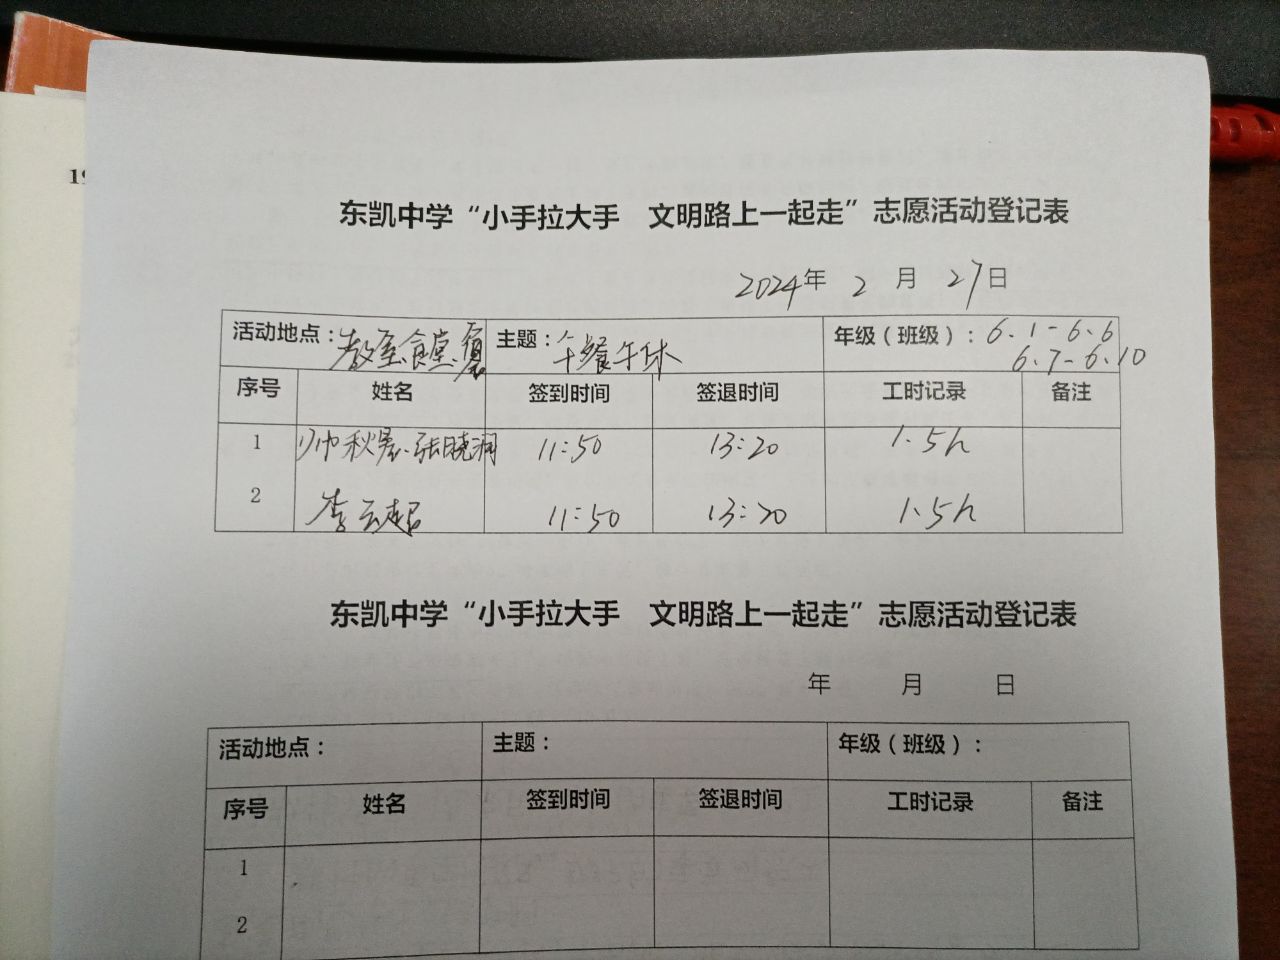 19
东凯中学“小手拉大手 文明路上一起走”志愿活动登记表
2024年 2 月 27日
活动地点：教室.食堂. 主题：午餐午休 年级（班级）：6.1-6.6
6.7-6.10
序号 姓名 签到时间 签退时间 工时记录 备注
1 帅秋晨.张晓润 11:50 13:20 1.5h
2 李云起 11:50 13:20 1.5h
东凯中学“小手拉大手 文明路上一起走”志愿活动登记表
年 月 日
活动地点： 主题： 年级（班级）：
序号 姓名 签到时间 签退时间 工时记录 备注
1
2